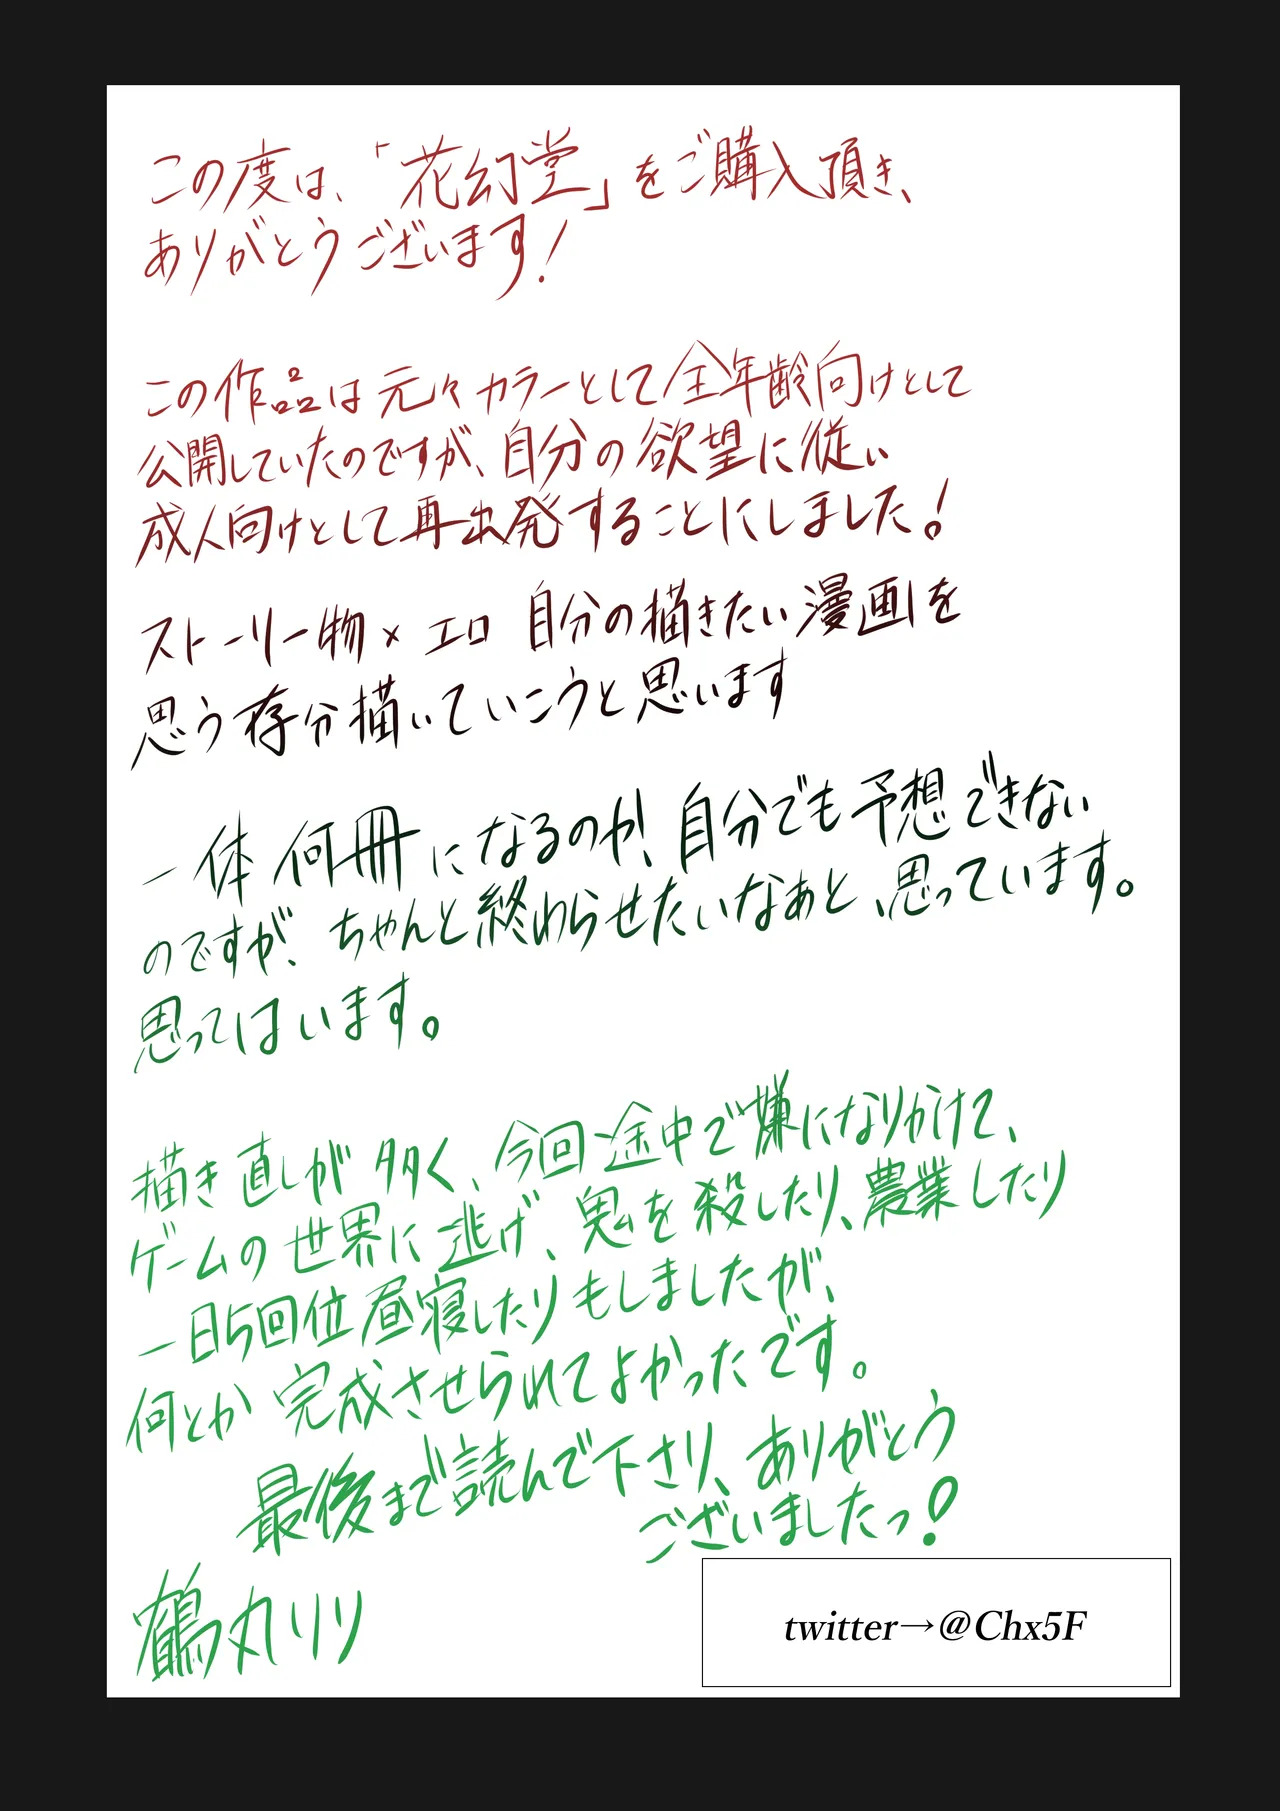 この度は、「花幻堂」をご購入頂き、
ありがとうございます！
この作品は元々カラーとして全年齢向けとして
公開していたのですが、自分の欲望に従い
成人向けとして再出発することにしました！
ストーリー物×エロ 自分の描きたい漫画を
思う存分描いていこうと思います
一体何冊になるのか、自分でも予想できない
のですが、ちゃんと終わらせたいなぁと、思っています。
思ってはいます。
描き直しが多く、今回途中で嫌になりかけて、
ゲームの世界に逃げ、鬼を殺したり、農業したり
一日5回位昼寝したりもしましたが、
何とか完成させられてよかったです。
最後まで読んで下さり、ありがとう
ございましたっ！
鶴丸リリ
twitter→@Chx5F